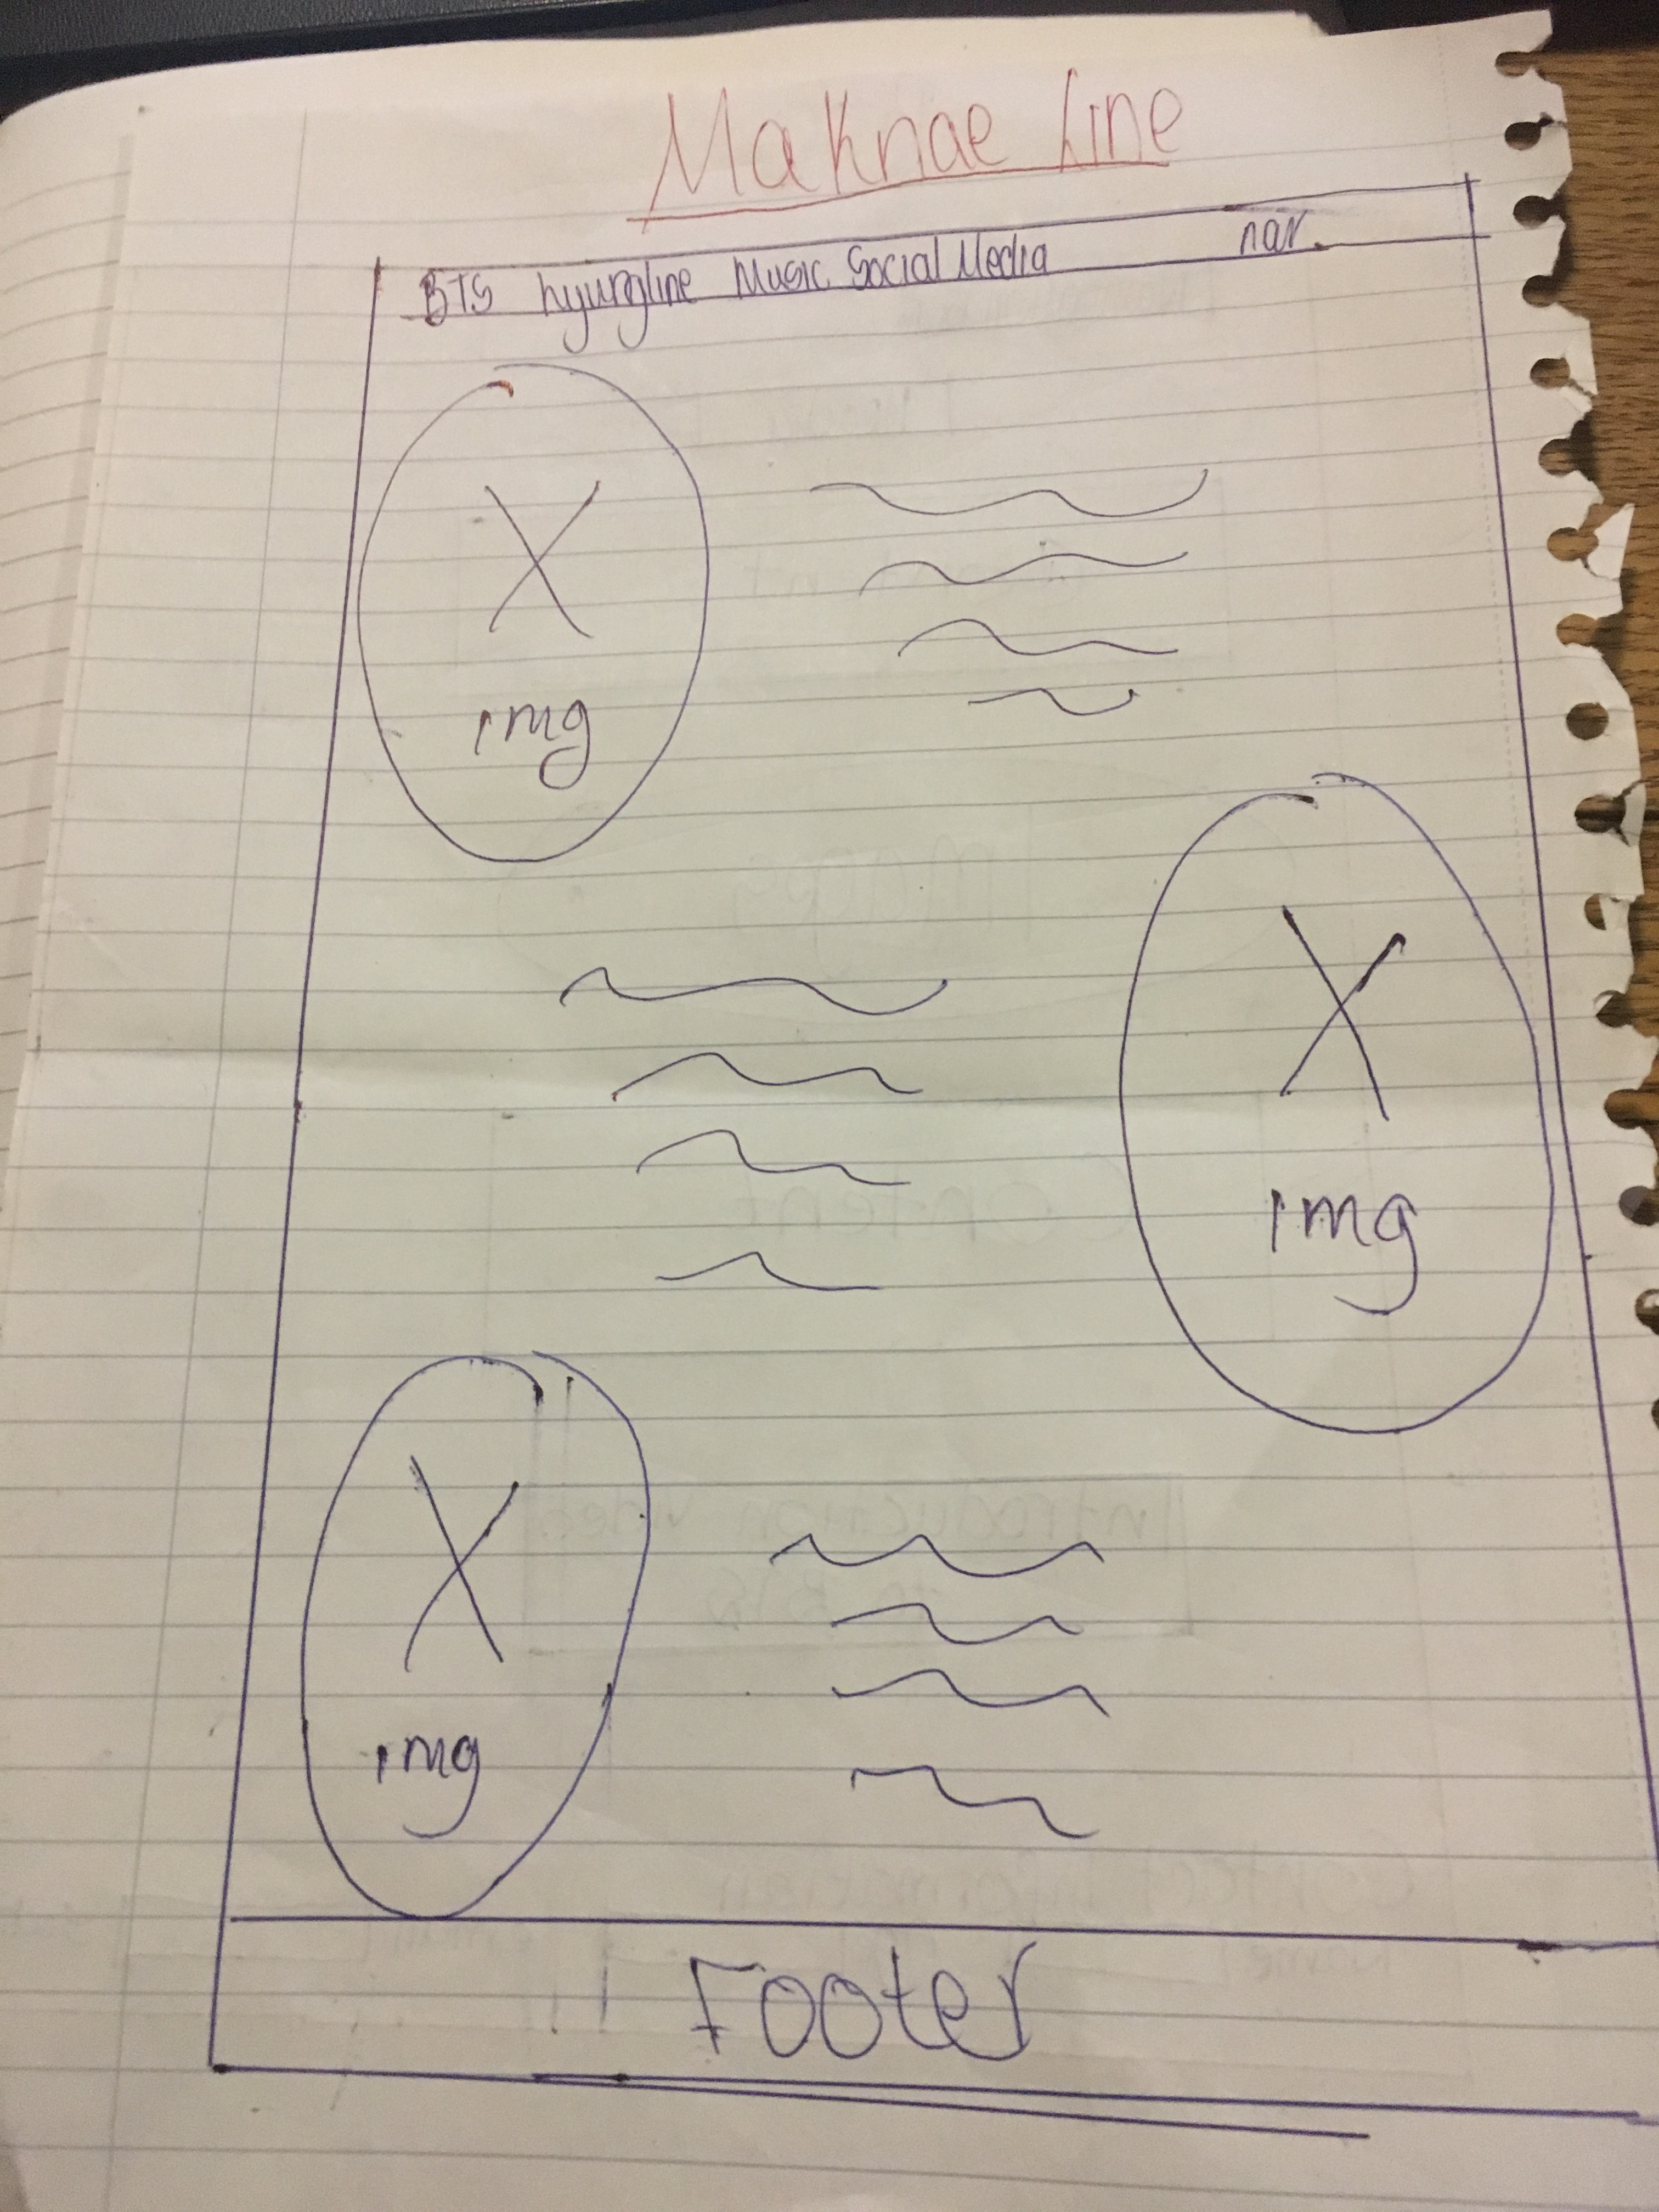 Maknae Line
BTS hyungline Music Social Media nav.
img
img
img
Footer